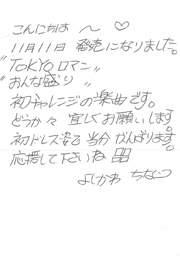 こんにちは 〜 ♡
11月11日 発売になりました。
"TOKYOロマン"
"おんな盛り"
初チャレンジの楽曲です。
どうか々 宜しくお願いします。
初ドレス姿で 当分 がんばります。
応援して下さいね
よしかわ